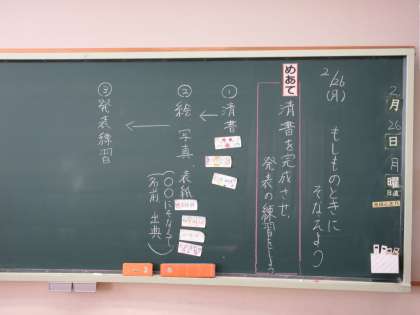 2月26日月曜
日直
2/26(月)
もしものときに
そなえよう
めあて
清書を完成させ、
発表の練習をしよう
①清書
②絵 写真 表紙
(〇〇にそなえて
名前 出典)
③発表練習